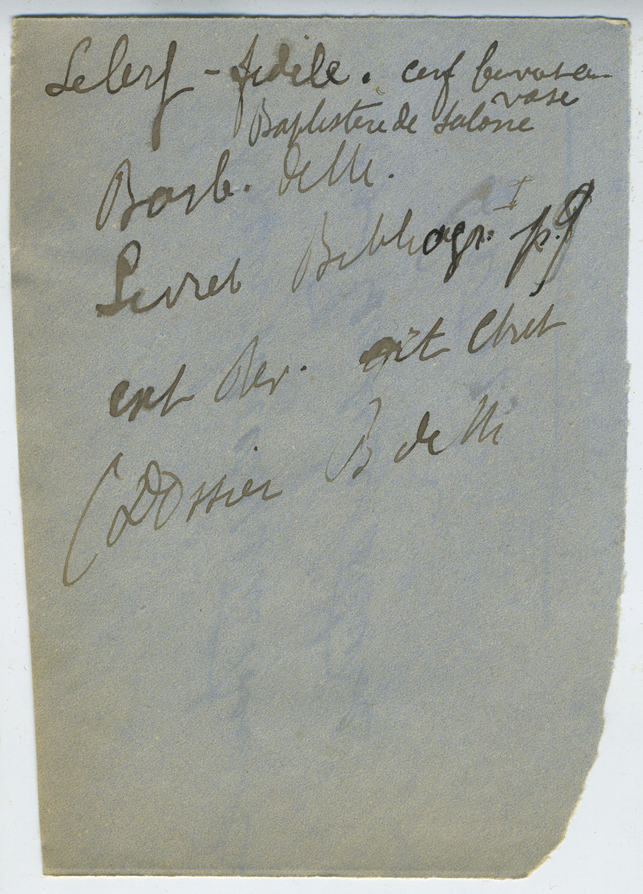 Le Cerf - fidèle. cerf buvant au
vase
Baptistère de Salone
Barb. de M.
Livret Bibliogr. I p. 9
ext Rev. art Chrét
(Dossier B de M